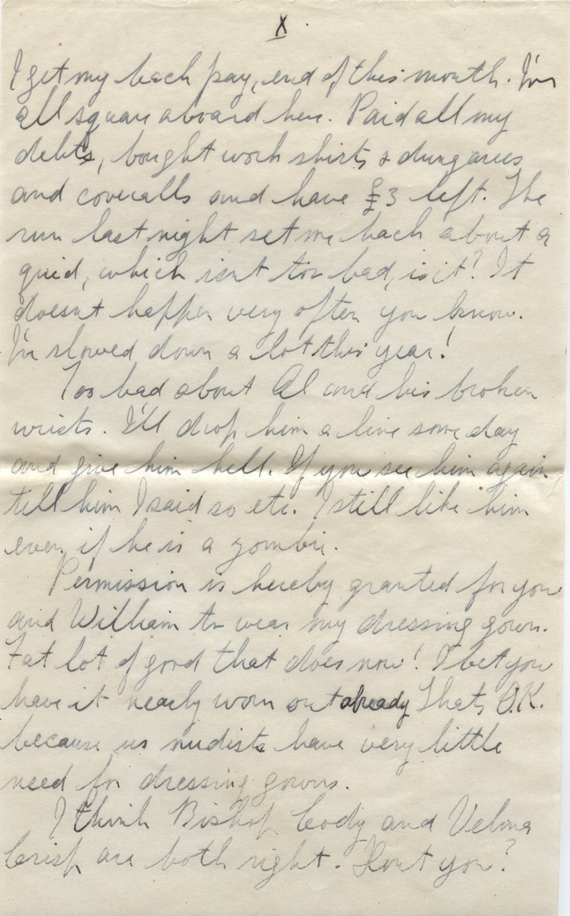 X
I get my back pay, end of this month. I'm
all square aboard here. Paid all my
debts, bought work shirts & dungarees
and coveralls and have £3 left. The
run last night set me back about a
quid, which isn't too bad, is it? It
doesn't happen very often you know.
I've slowed down a lot this year!
Too bad about Al and his broken
wrists. I'll drop him a line some day
and give him hell. If you see him again,
tell him I said so etc. I still like him
even if he is a zombie.
Permission is hereby granted for you
and William to wear my dressing gown.
Fat lot of good that does now! I bet you
have it nearly worn out already. Thats O.K.
because us nudists have very little
need for dressing gowns.
I think Bishop Cody and Velma
Crisp are both right. Don't you?